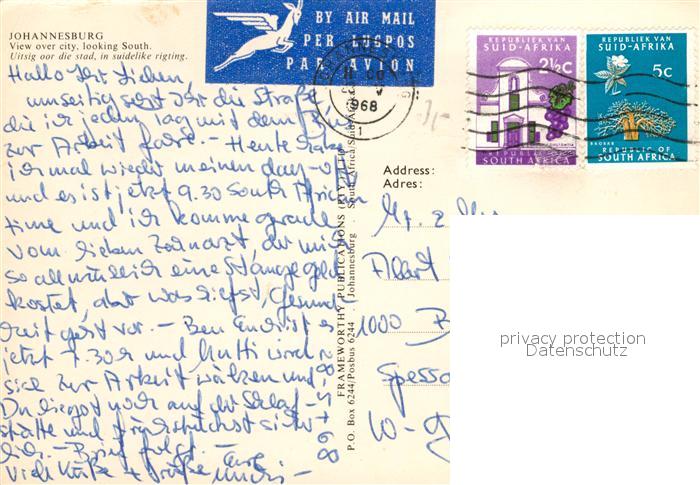 JOHANNESBURG
View over city, looking South.
Uitsig oor die stad, in suidelike rigting.
BY AIR MAIL
PER LUGPOS
PAR AVION
968
REPUBLIEK VAN
SUID-AFRIKA
2½c
REPUBLIC OF
SOUTH AFRICA
REPUBLIEK VAN
SUID-AFRIKA
5c
BAOBAB
REPUBLIC OF
SOUTH AFRICA
Hallo Ihr Lieben,
umseitig seht Ihr die Straße
die ich jeden Tag mit dem Bus
zur Arbeit fahre. – Heute habe
ich mal wieder meinen day-off
und es ist jetzt 9.30 South African
time und ich komme gerade
vom lieben Zahnarzt, der mich
so allmählich eine Stange Geld
kostet, aber was hilfst, Gesund-
heit geht vor. – Bei Euch ist es
jetzt 7.30h und Mutti wird
sich zur Arbeit wälzen und
Du liegst noch auf der Schlaf-
stätte und frühstückst sicher-
lich. – Brief folgt. – Eure
Viele Küße + Grüße Muckl –
FRAMEWORTHY PUBLICATIONS (PTY.) LTD.
P.O. Box 6244/Posbus 6244 Johannesburg South Africa/Suid-Afrika
Address:
Adres:
Albert
1000 B
Spessa
W-G
privacy protection
Datenschutz